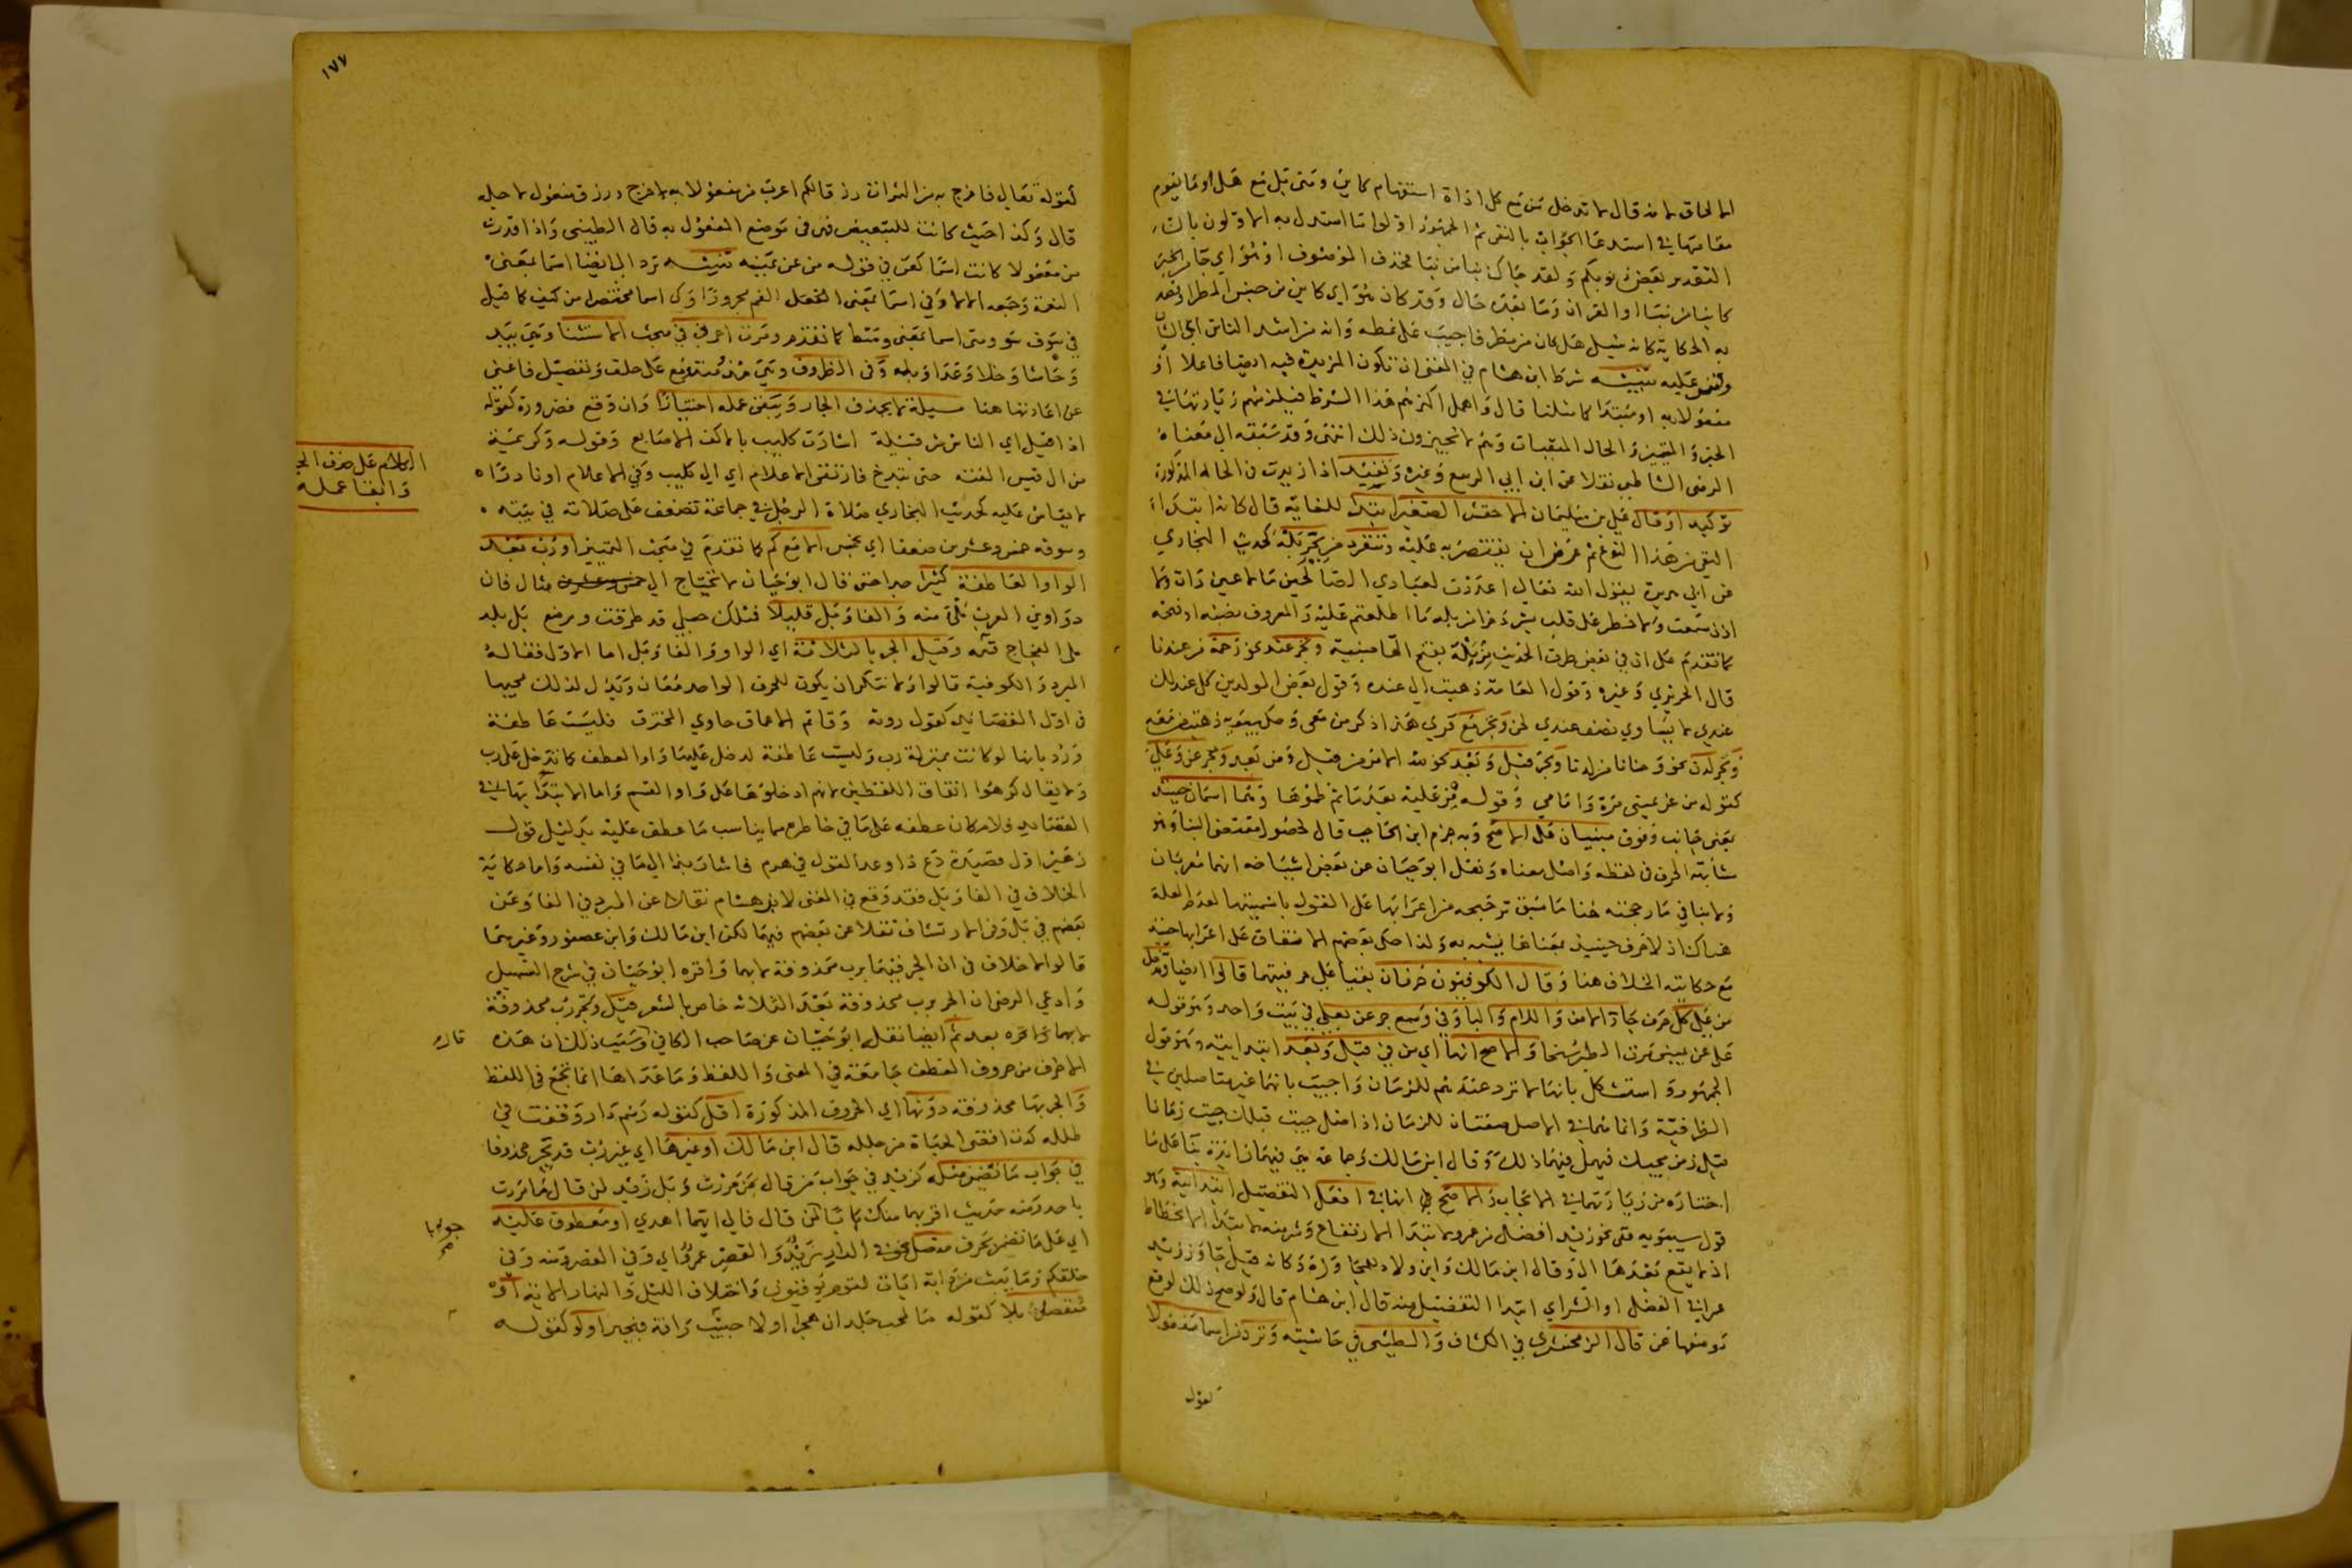 الالحاق لانه قال لا تدخل من مع كل اداة استفهام كاين ومتى بل مع هل او ما يقوم
مقامها في استدعا الجواب بالنفي ثم الجمهور اولوا ما استدل به الاولون بان
التقدير بعض ذنوبكم ولقد جاك نبا من نبا فحذف الموصوف او هو اي جا الخبر
كاينا من نبا او القران وما بعده حال وقد كان هو اي كاين من جنس المطر او بعد
به الحكاية كانه سيل هل كان من مطر فاجيب على نمطه وانه من اشد الناس اي الشان
وقس عليه تنبيه شرط ابن هشام في المغنى ان تكون المزيدة فيه ايضا فاعلا او
مفعولا به او مبتدا كما مثلنا قال واهمل اكثرهم هذا الشرط فيلزمهم زيادتها في
الخبر والتمييز والحال المنفيات وهم لا يجيزون ذلك انتهى وقد سبقه الى معناه
الرضي الشاطبي نقلا عن ابن ابي الربيع وغيره وتفيد اذا زيدت في الحالة المذكورة
توكيد او قال علي بن سليمان الاخفش الصغير ابتدا للغاية قال كانه ابتداء
النفي من هذا النوع ثم عرض ان يقتصر به عليه وتنفرد من بجر بله كحديث البخاري
عن ابي هريرة يقول الله تعالى اعددت لعبادي الصالحين ما لا عين رات ولا
اذن سمعت ولا خطر على قلب بشر ذخرا من بله ما اطلعتم عليه والمعروف نصبه او فتحه
كما تقدم على ان في بعض طرق الحديث من بله بفتح الها مبنية وبجر عند نحو رحمة من عندنا
قال الحريري وغيره وقول العامة ذهبت الى عنده وقول بعض المولدين كل عند لك
عندي لا يساوي نصف عندي لحن وبجر مع قري هذا ذكر من معي وحكى سيبويه ذهبت من معه
وبجر لدن نحو وحنانا من لدنا وبجر قبل وبعد نحو لله الامر من قبل ومن بعد وبجر عن وعلى
كقوله من عن يميني مرة وامامي وقوله من عليه بعد ما تم ظموها وهما اسمان حينئذ
بمعنى جانب وفوق مبنيان على الاصح وبه جزم ابن الحاجب قال لحصول مقتضى البنا وهو
مشابهة الحرف في لفظه واصل معناه ونقل ابو حيان عن بعض اشياخه انهما معربان
هناك اذ لا حرف حينئذ بمعناها فيشبه به ولذا حكى بعضهم الاتفاق على اعرابها حينئذ
مع حكايته الخلاف هنا وقال الكوفيون حرفان بقيا على حرفيتهما قالوا ايضا وتدخل
من على كل حرف جار الا من واللام والبا وفي وسمع جر عن بعلى في بيت واحد وهو قوله
على عن يميني مرت الطير سنحا والاصح انها اي من في قبل وبعد ابتدائية وهو قول
الجمهور واستشكل بانها لا ترد عندهم للزمان واجيب بانهما غير متاصلين في
الظرفية وانما هما في الاصل صفتان للزمان اذ اصل جيت قبلك جيت زمانا
قبل زمن مجيك فيهل فيهما ذلك وقال ابن مالك وجماعة هي فيهما زائدة بنا على ما
اختاره من زيادتها في الايجاب والاصح انها في افعل التفضيل ابتدائية وهو
قول سيبويه ففي نحو زيد افضل من عمرو لابتدا الارتفاع وشر منه لابتدا الانحطاط
اذ لا يقع بعدها الى وقال ابن مالك وابن ولاد للمجاوزة وكانه قيل جاوز زيد
عمرا في الفضل او الشر اي ابتدا التفضيل منه قال ابن هشام قال ولو صح ذلك لوقع
موضعها عن قال الزمخشري في الكشاف والطيبي في حاشيته وترد من اسما مفعولا
لقول
١٧٧
لقوله تعالى فاخرج به من الثمرات رزقا لكم اعرب من مفعولا به لاخرج ورزق مفعول لاجله
قال وكذا حيث كانت للتبعيض فهي في موضع المفعول به قال الطيبي واذا قدرت
من مفعولا كانت اسما كعن في قوله من عن يمينه تنبيه ترد الى ايضا اسما بمعنى
النعمة وجمعه الالا وفي اسما بمعنى الفم مجرورا وكي اسما مختصرا من كيف كما قيل
في سوف سو ومتى اسما بمعنى وسط كما تقدم ومرت احرف في مبحث الاستثنا وهي بيد
وحاشا وخلا وعدا وبله وفي الظروف وهي مذ منذ مع على خلف وتفصيل فاغنى
عن اعادتها هنا مسيلة لا يحذف الجار ويبقى عمله اختيارا وان وقع فضرورة كقوله
اذا قيل اي الناس شر قبيلة اشارت كليب بالاكف الاصابع وقوله وكريمة
من ال قيس الفته حتى تبذخ فارتقى الاعلام اي الى كليب وفي الاعلام او نادرا
لا يقاس عليه كحديث البخاري صلاة الرجل في جماعة تضعف على صلاته في بيته
وسوقه خمس وعشرين ضعفا اي بخمس الا مع كم كما تقدم في مبحث التمييز او رب بعد
الواو العاطفة كثيرا جدا حتى قال ابو حيان لا تحتاج الى مثال فان
دواوين العرب ملئ منه والفا وبل قليلا فمثلك حبلى قد طرقت ومرضع بل بلد
ملء الفجاج قتمه وقيل الجر بالثلاثة اي الواو والفا وبل اما الاول فقاله
المبرد والكوفية قالوا ولا ننكر ان يكون للحرف الواحد معان ويدل لذلك مجيها
في اول القصايد كقول روبة وقاتم الاعماق حاوي المخترق فليست عاطفة
ورد بانها لو كانت بمنزلة رب وليست عاطفة لدخل عليها واو العطف كما تدخل على رب
ولا يقال كرهوا اتفاق اللفظين لانهم ادخلوها على واو القسم واما الابتدا بها في
القصايد فلامكان عطفه على ما في خاطره مما يناسب ما عطف عليه بدليل قول
زهير اول قصيدة دع ذا وعد القول في هرم فاشار بذا الى ما في نفسه واما حكاية
الخلاف في الفا وبل فقد وقع في المغنى لابن هشام نقلا عن المبرد في الفا وعن
بعضهم في بل وفي الارتشاف نقلا عن بعضهم فيهما لكن ابن مالك وابن عصفور وغيرهما
قالوا لا خلاف في ان الجر فيهما برب محذوفة لا بهما واقره ابو حيان في شرح التسهيل
وادعى الرضي ان الجر برب محذوفة بعد الثلاثة خاص بالشعر قيل وبجر رب محذوفة
لا بهما واخره بعد ثم ايضا نقله ابو حيان عن صاحب الكافي وسبب ذلك ان هذه قال
الاحرف من حروف العطف جامعة في المعنى واللفظ وما عداها انما تجمع في اللفظ
والجر بها محذوفة دونها اي الحروف المذكورة اقل كقوله رسم دار وقفت في
طلله كدت اقضي الحياة من جلله قال ابن مالك او غيرها اي غير رب قد يجر محذوفا
في جواب ما تضمن مثله كزيد في جواب من قال بمن مررت وبل زيد لمن قال ما مررت
باحد ومنه حديث اقربهما منك بابا لمن قال فالى ايهما اهدي او معطوف عليه جوابا
اي على ما تضمن بحرف متصل نحو في الدار زيد والقصر عمرو اي وفي القصر ومنه وفي
خلقكم وما يبث من دابة ايات لقوم يوقنون واختلاف الليل والنهار الاية او
منفصل بلا كقوله ما لمحب جلد ان هجرا ولا حبيب رافة فيجبرا ولو كقوله
الكلام على حذف الجر
وابقا عمله